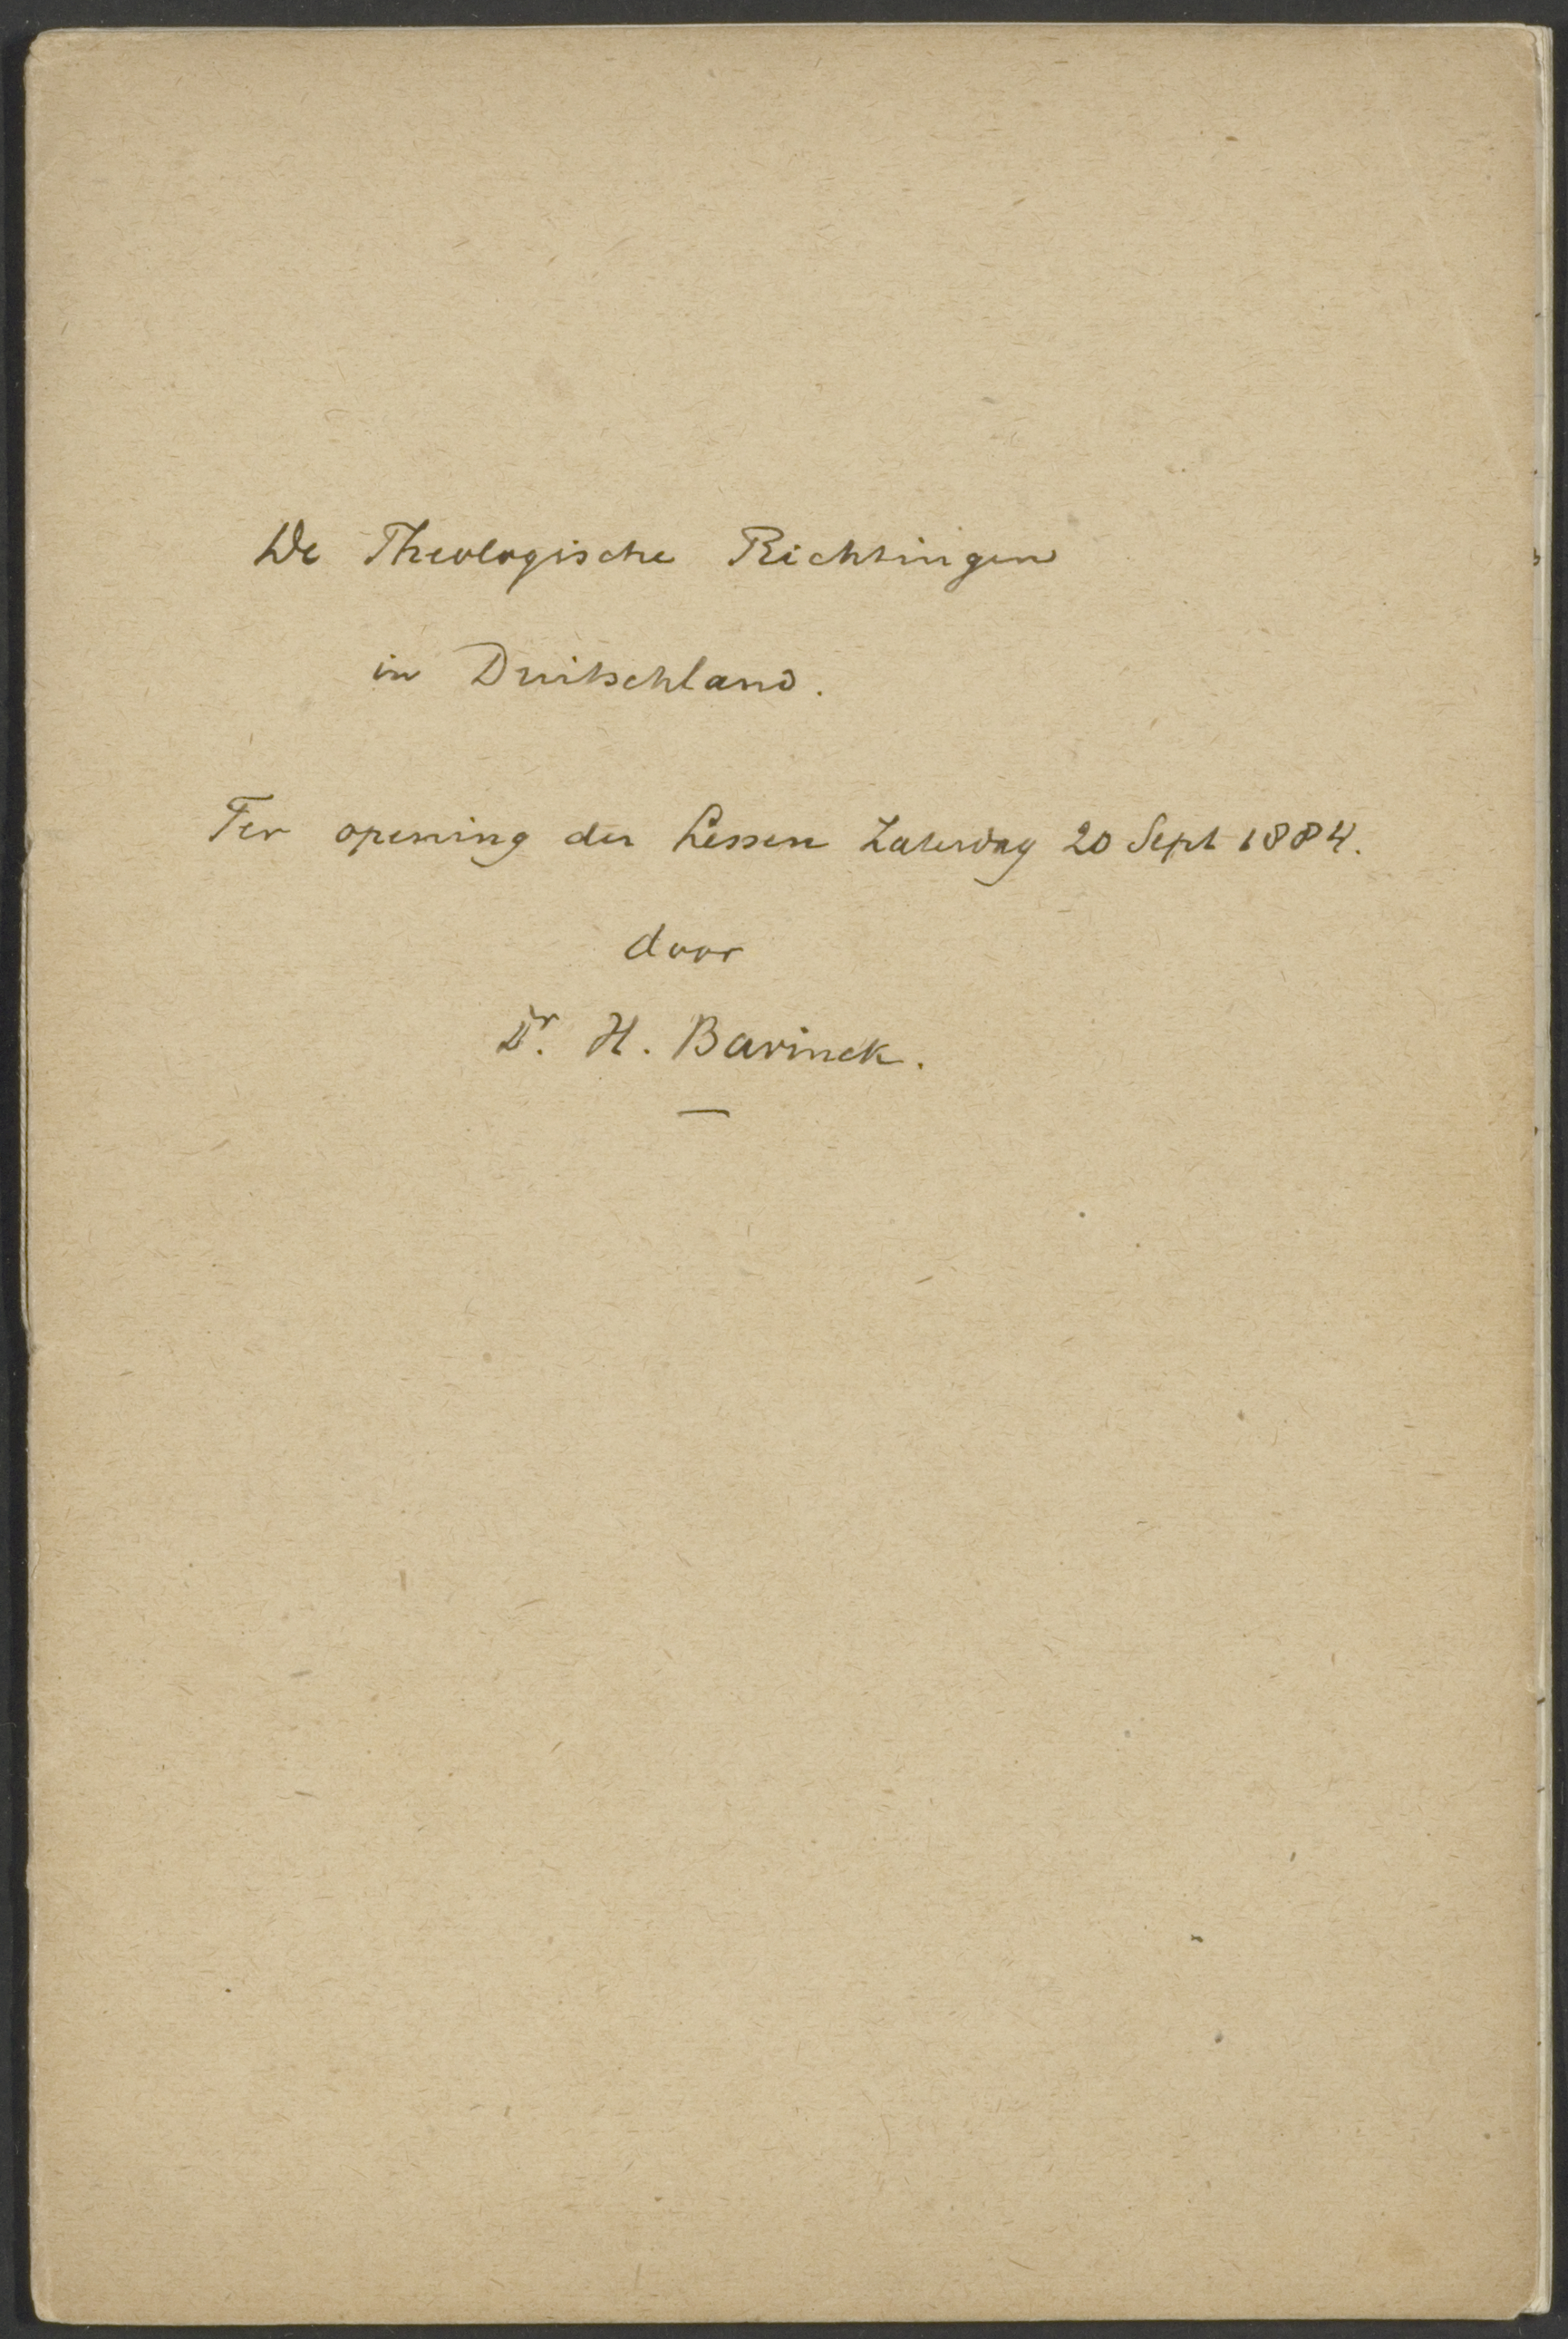 De Theologische Richtingen
in Duitschland.
Ter opening der Lessen Zaterdag 20 Sept 1884.
door
Dr. H. Bavinck.